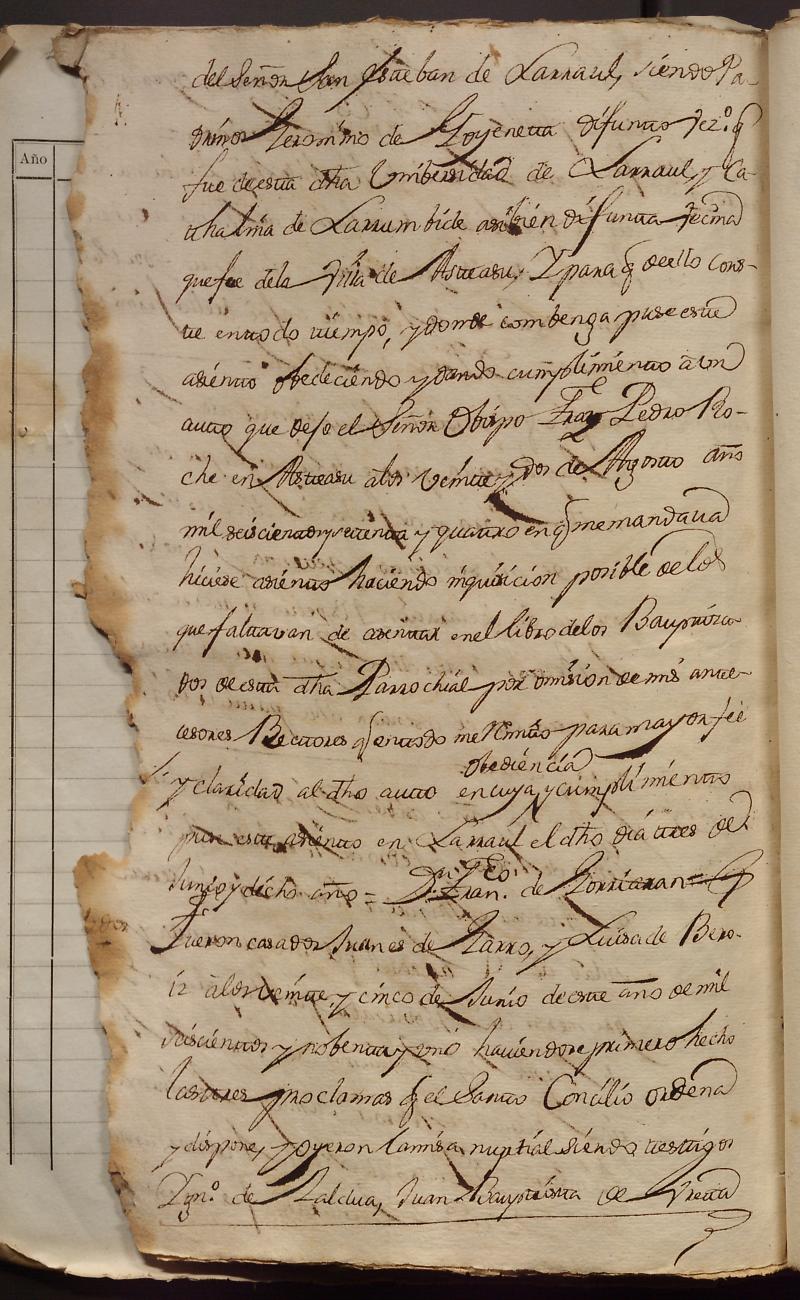 Año
del Señor San Esteban de Larraul, siendo Pa-
drinos Geronimo de Goyeneta difunto vez.º q
fue de esta dha Vnibersidad de Larraul, y Ca-
thalina de Larrumbide asibien difunta vecina
que fue dela Villa de Asteasu, Y para q de ello cons-
te en todo tiempo, y donde combenga puse este
asiento obedeciendo y dando cumplimiento a un
auto que dejo el Señor Obispo Fray Pedro Ro-
che en Asteasu a los veinte y dos de Agosto año
mil seiscientos y setenta y quatro en q me mandava
hiciese asiento haciendo inquisicion posible de los
que faltavan de asentar en el libro de los Bauptiza-
dos de esta dha Parrochial por omision de mis ante-
cesores Rectores q en todo me remito para mayor fee
y claridad al dho auto en cuya obediencia y cumplimiento
puse este asiento en Larraul el dho dia tres de
Junio y dicho año = Dn. Fran.co de Gorriaran =
Fueron casados Juanes de Garro, y Luisa de Bero-
iz a los veinte, y cinco de Junio de este año de mil
seiscientos y nobenta y uno haviendose primero hecho
las tres proclamas q el Santo Concilio ordena
y dispone, y oyeron la misa nuptial siendo testigos
Ign.º de Zaldua, Juan Bauptista de Vreta